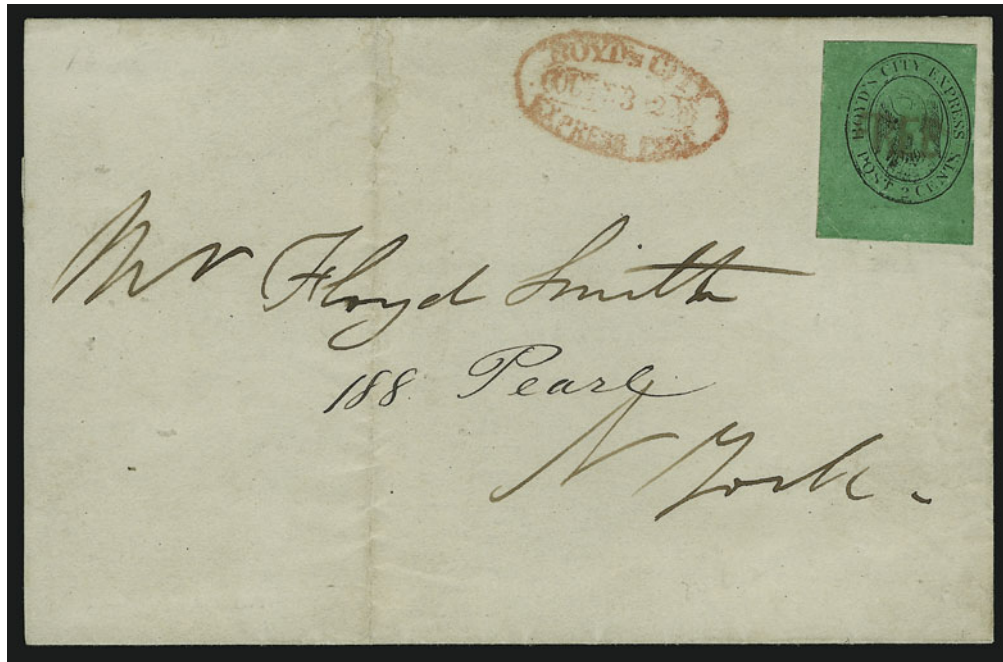 BOYD'S CITY
OCT 23
EXPRESS POST
BOYD'S CITY EXPRESS
POST 2 CENTS
Mr Floyd Smith
188 Pearl
N York.